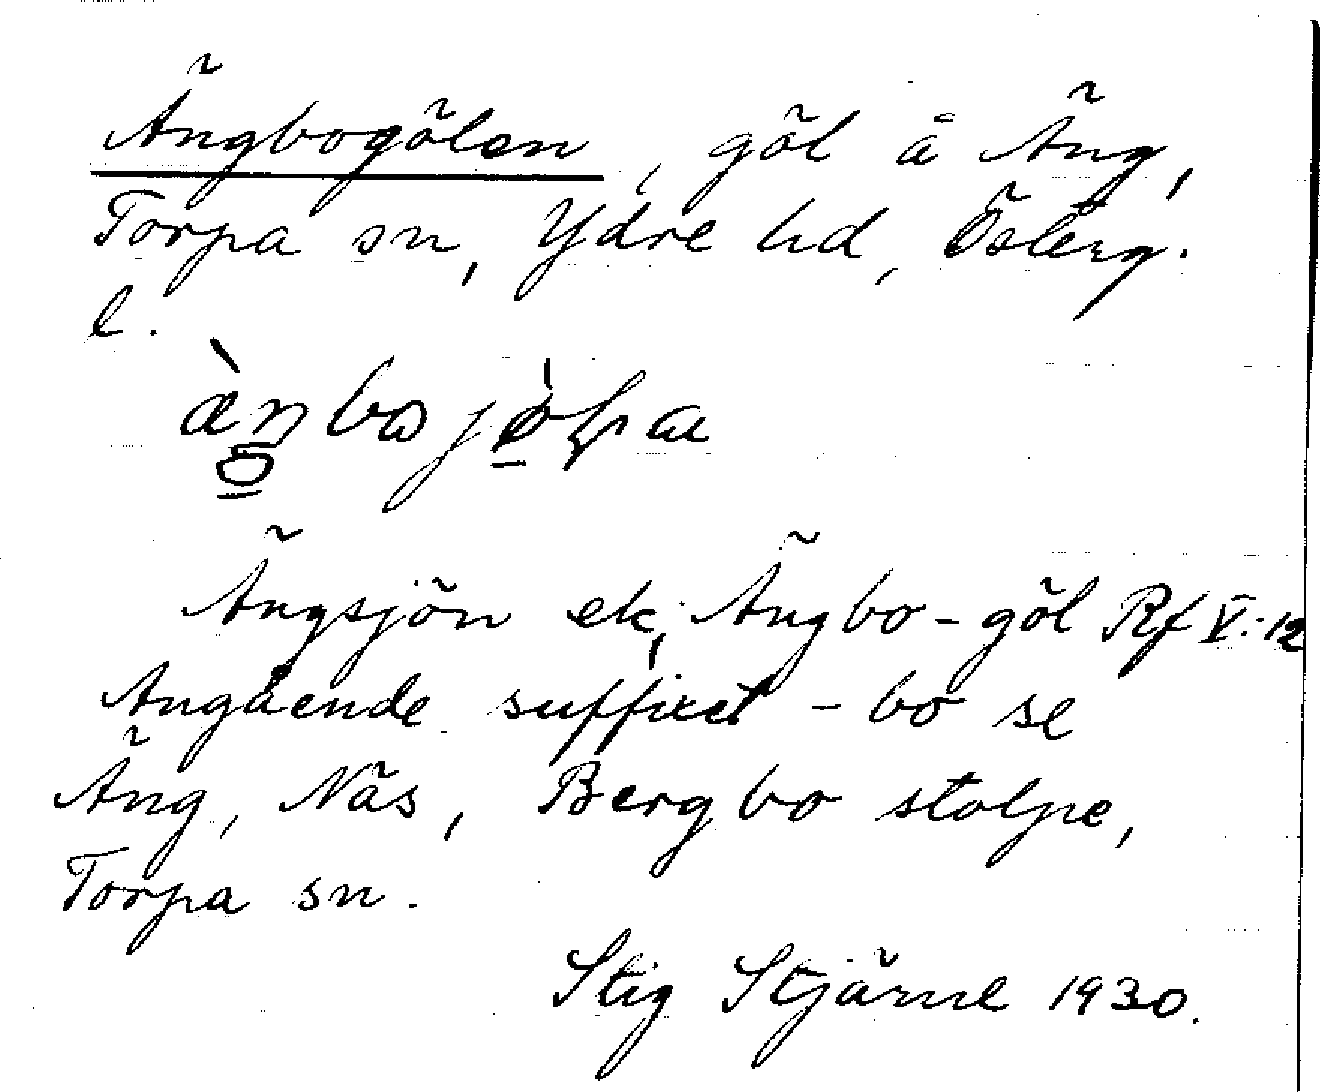 Ängbogölen, göl å Äng,
Torpa sn, Ydre hd, Österg.
l.
Ängsjön ek, Ängbo-göl Rf V:12
Angående suffixet -bo se
Äng, Näs, Bergbo stolpe,
Torpa sn.
Stig Stjärne 1930.